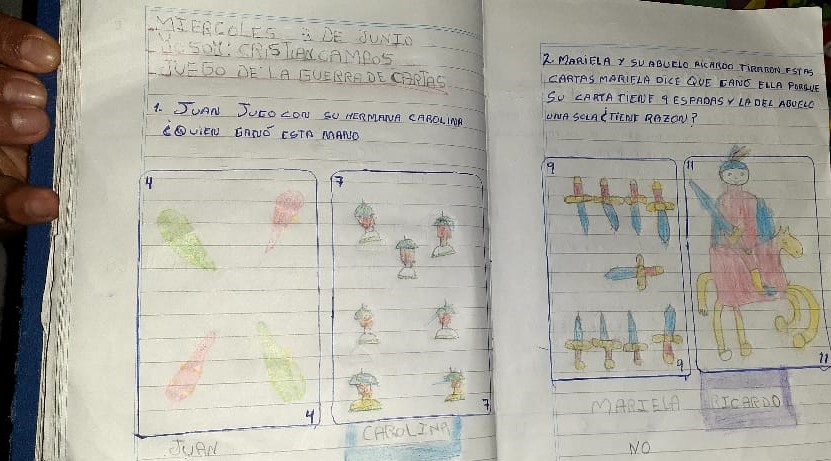 MIERCOLES 3 DE JUNIO
CRISTIAN CAMPOS
JUEGO DE LA GUERRA DE CARTAS
1. JUAN JUGO CON SU HERMANA CAROLINA
¿QUIEN GANÓ ESTA MANO
4
7
4
7
JUAN
CAROLINA
2. MARIELA Y SU ABUELO RICARDO TIRARON ESTAS
CARTAS MARIELA DICE QUE GANÓ ELLA PORQUE
SU CARTA TIENE 9 ESPADAS Y LA DEL ABUELO
UNA SOLA ¿TIENE RAZON?
9
11
9
11
MARIELA
RICARDO
NO